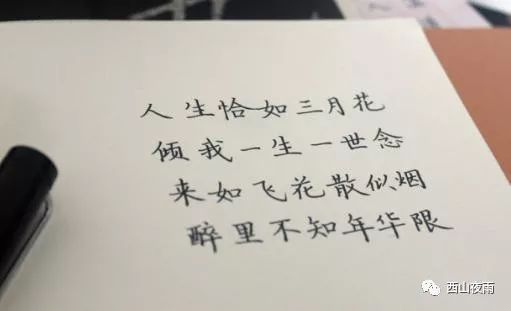 人生恰如三月花
倾我一生一世念
来如飞花散似烟
醉里不知年华限
西山夜雨